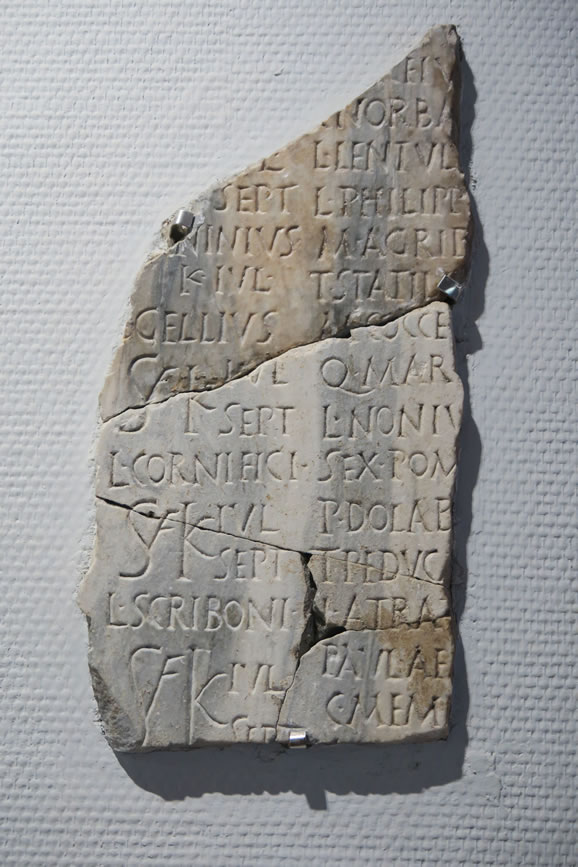 NORBA
L·LENTVL
SEPT L·PHILIPP
NINIVS M·AGRIP
K·IVL· T·STATIL
GELLIVS COCCE
IVL Q·MAR
K SEPT L·NONIV
L·CORNIFICI· SEX·POM
SF·K·IVL P·DOLAB
SF·K SEPT T·PEDVC
L·SCRIBONI· L·ATRA
SF·K IVL PAVL·AE
SEPT C·MEM